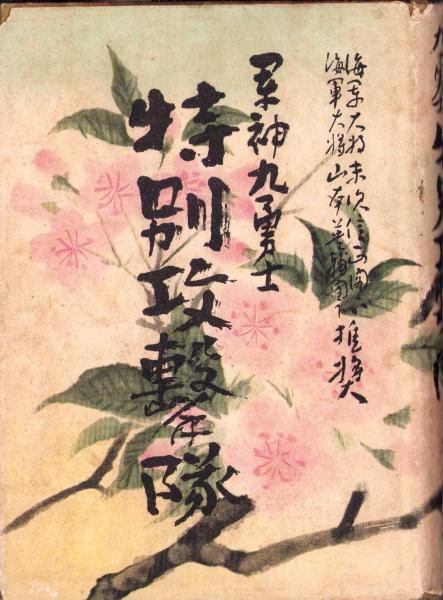 海軍大将末次信正閣下
海軍大将山本英輔閣下推奨
軍神九勇士
特別攻撃隊